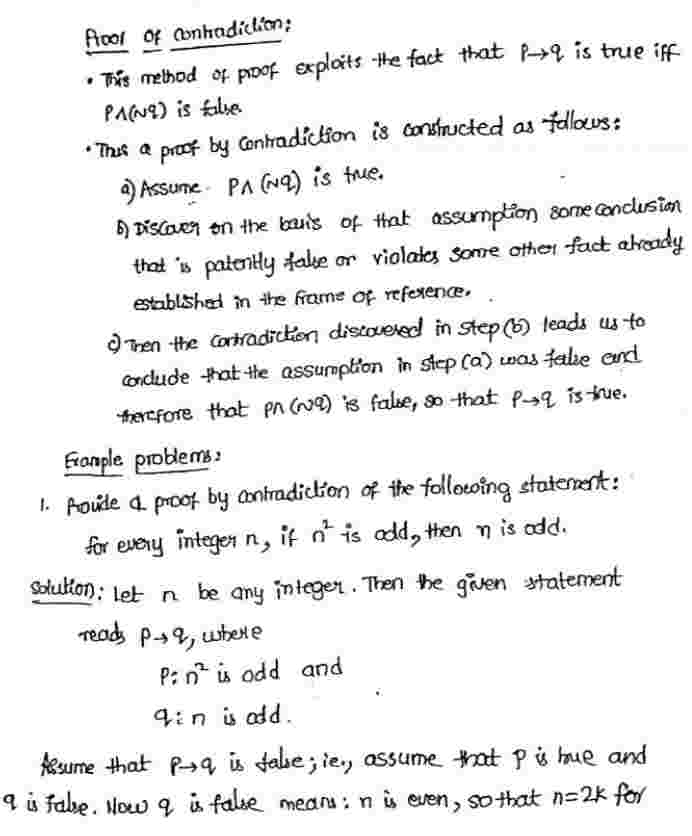 Proof of Contradiction:
• This method of proof exploits the fact that P→q is true iff
P∧(~q) is false.
• Thus a proof by Contradiction is constructed as follows:
a) Assume P∧(~q) is true.
b) Discover on the basis of that assumption some conclusion
that is patently false or violates some other fact already
established in the frame of reference.
c) Then the contradiction discovered in step(b) leads us to
conclude that the assumption in step (a) was false and
therefore that P∧(~q) is false, so that P→q is true.
Example problems:
1. Provide a proof by contradiction of the following statement:
for every integer n, if n² is odd, then n is odd.
Solution: Let n be any integer. Then the given statement
reads P→q, where
P: n² is odd and
q: n is odd.
Assume that P→q is false; ie., assume that P is true and
q is false. Now q is false means: n is even, so that n=2k for